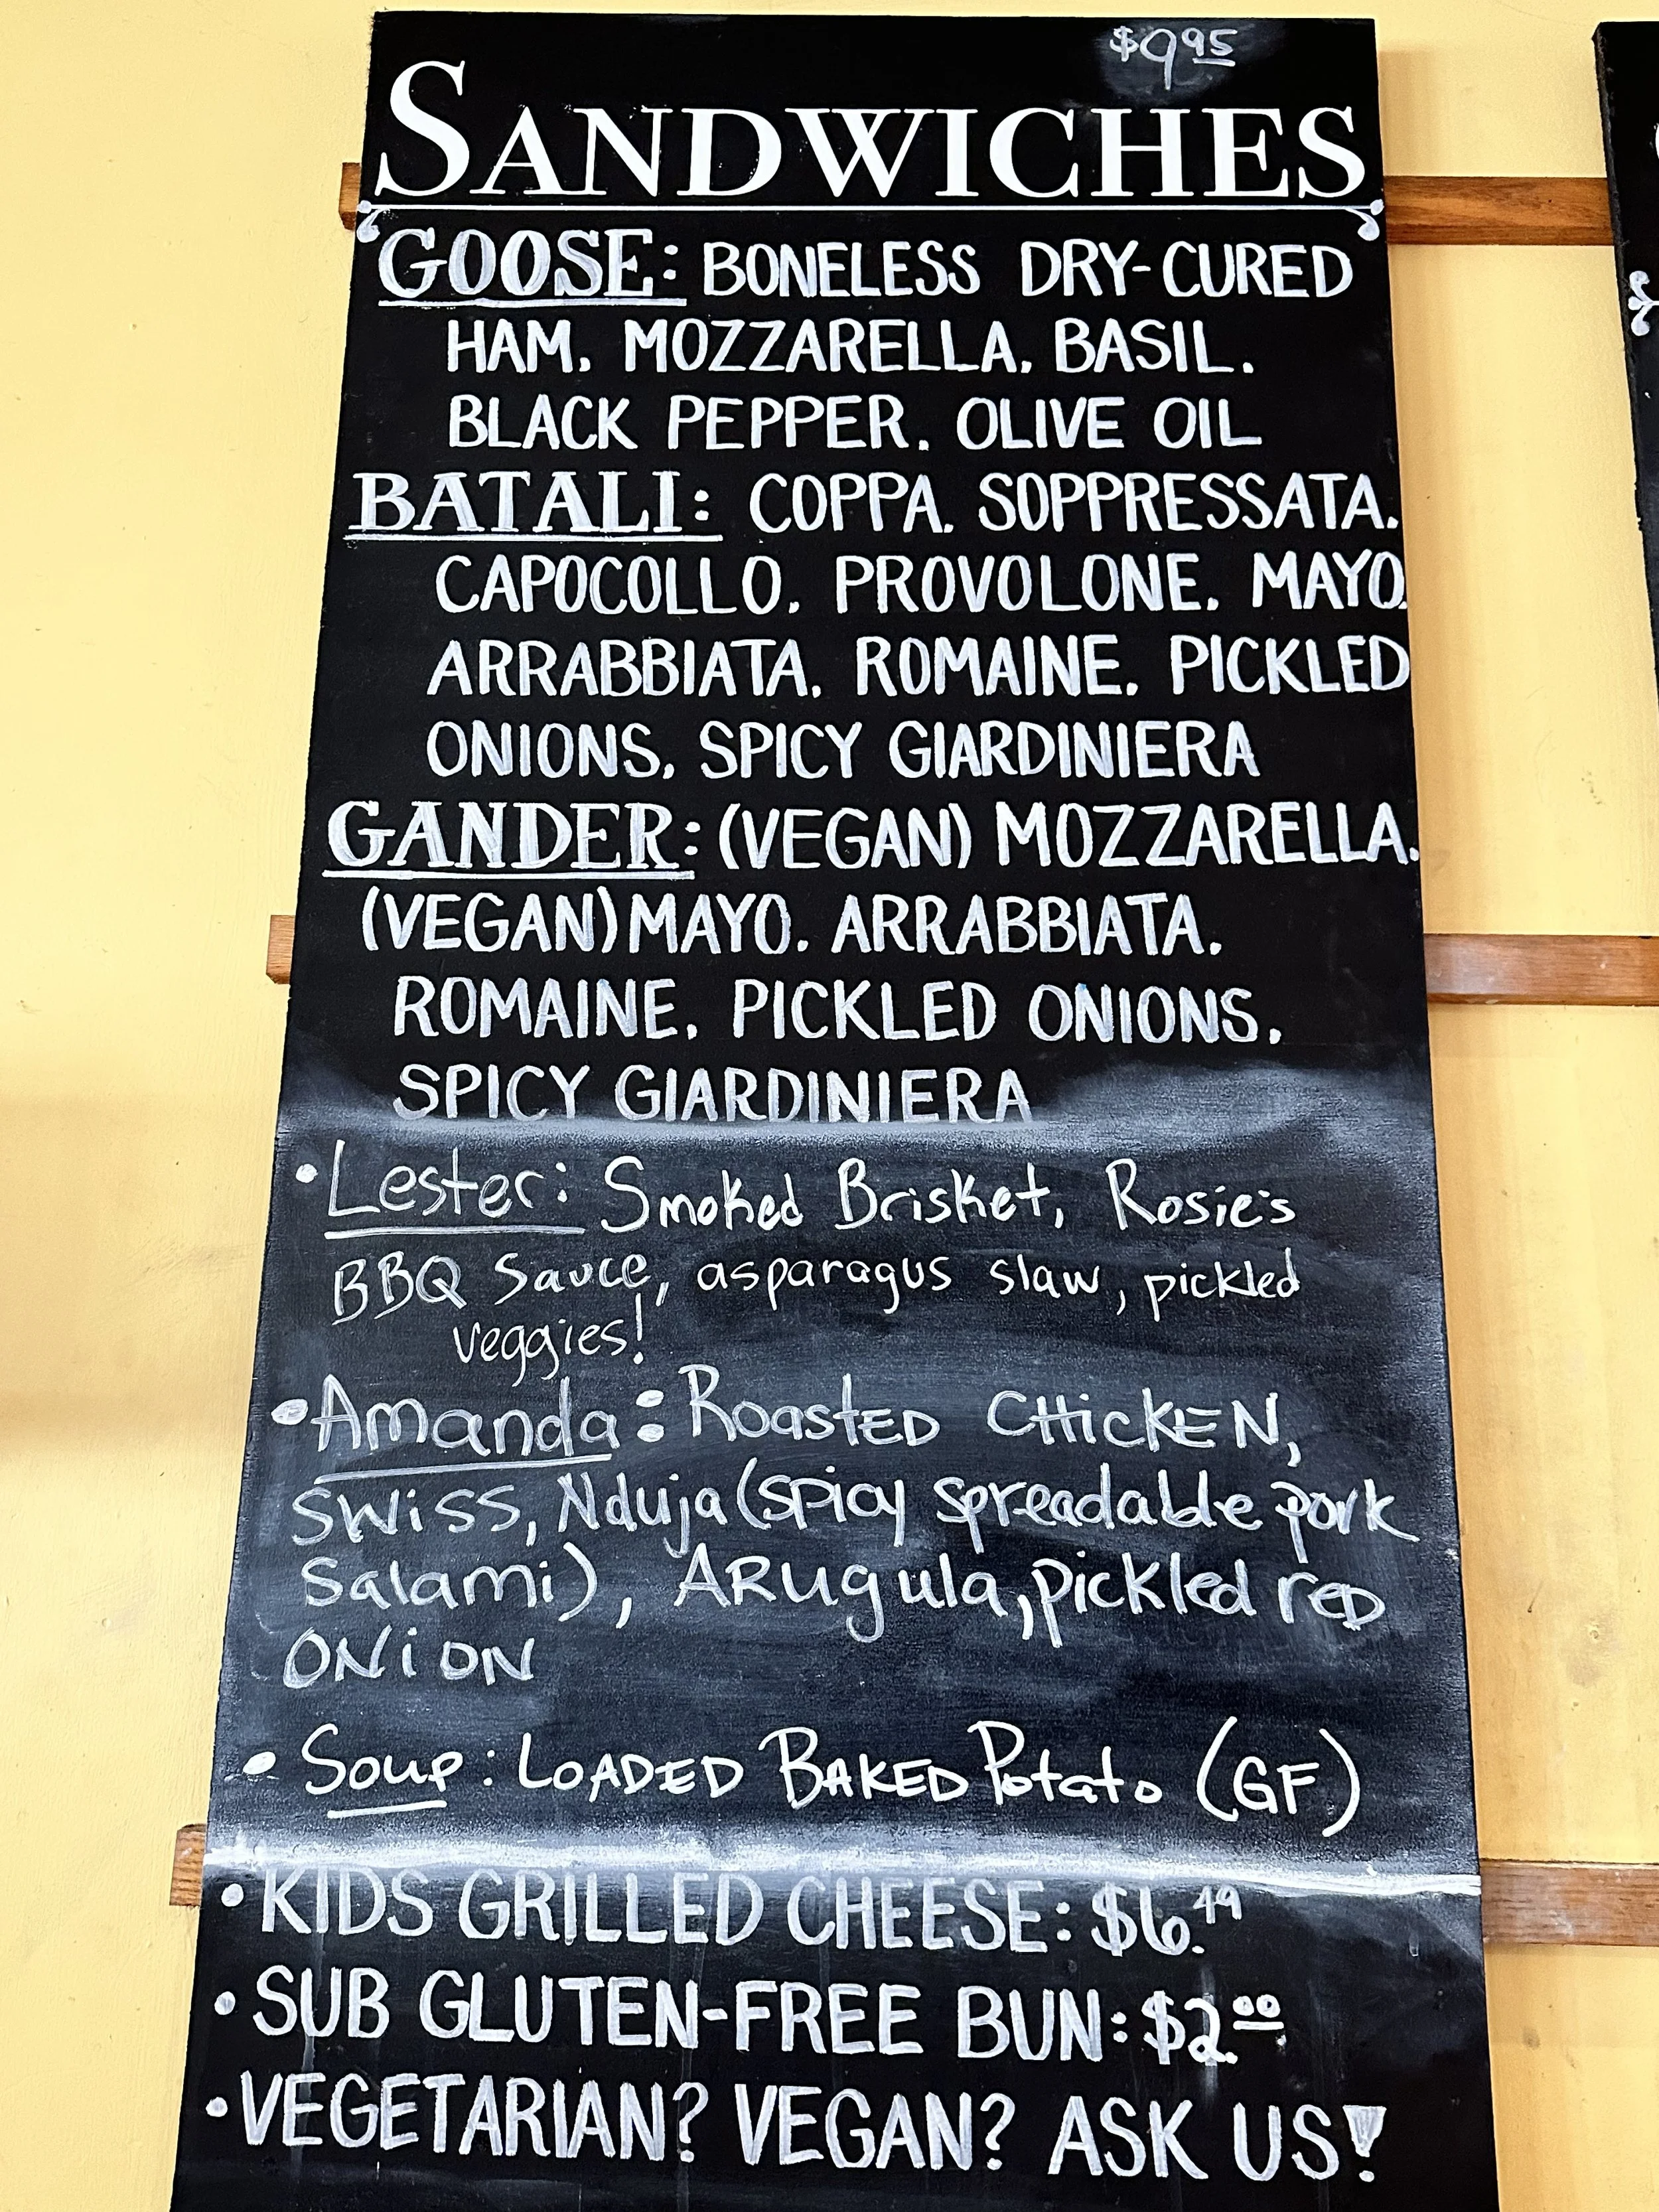 $9.95
SANDWICHES
GOOSE: BONELESS DRY-CURED
HAM, MOZZARELLA, BASIL,
BLACK PEPPER, OLIVE OIL
BATALI: COPPA, SOPPRESSATA,
CAPOCOLLO, PROVOLONE, MAYO,
ARRABBIATA, ROMAINE, PICKLED
ONIONS, SPICY GIARDINIERA
GANDER: (VEGAN) MOZZARELLA,
(VEGAN) MAYO, ARRABBIATA,
ROMAINE, PICKLED ONIONS,
SPICY GIARDINIERA
•Lester: Smoked Brisket, Rosie's
BBQ Sauce, asparagus slaw, pickled
veggies!
•Amanda: Roasted CHicKEN,
swiss, Nduja (spicy spreadable pork
Salami), ARugula, pickled red
ONiON
• Soup: LOADED BAKED Potato (GF)
•KIDS GRILLED CHEESE: $6.49
•SUB GLUTEN-FREE BUN: $2.00
•VEGETARIAN? VEGAN? ASK US!